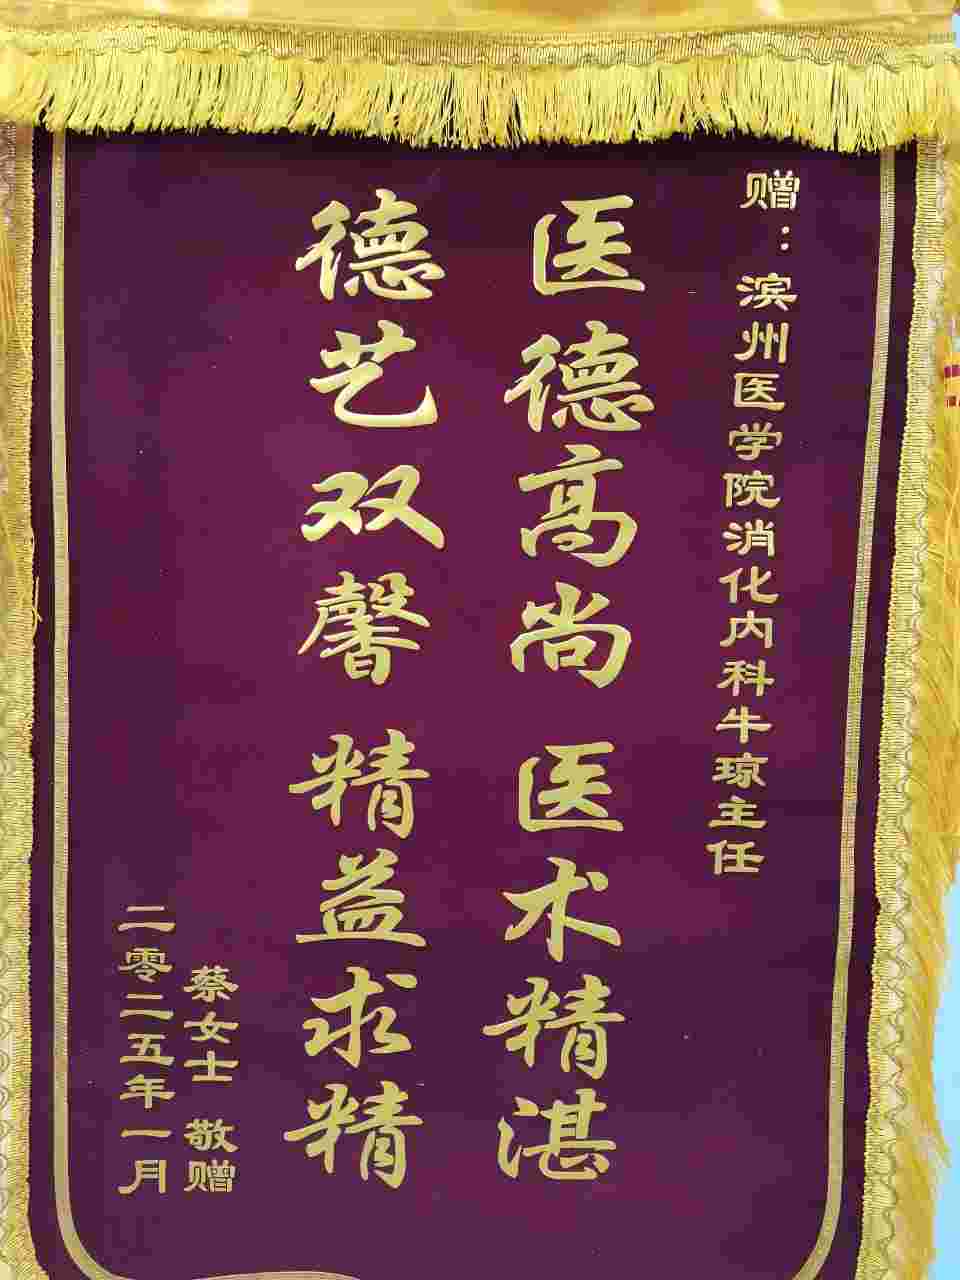 赠：滨州医学院消化内科牛琼主任
医德高尚 医术精湛
德艺双馨 精益求精
蔡女士 敬赠
二零二五年一月